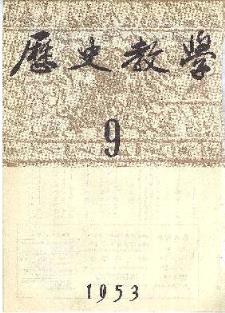 歷史教學
9
1953